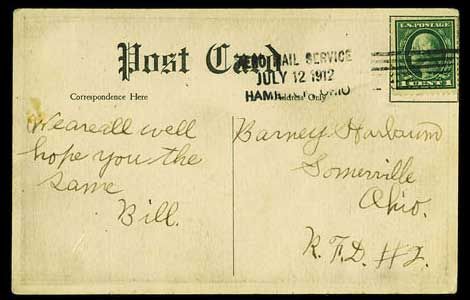 Post Card
AERO MAIL SERVICE
JULY 12 1912
HAMILTON, OHIO
U.S. POSTAGE
1 CENT 1
Correspondence Here
Address Only
We are all well
hope you the
same
Bill.
Barney
Somerville
Ohio.
R.F.D. #2.